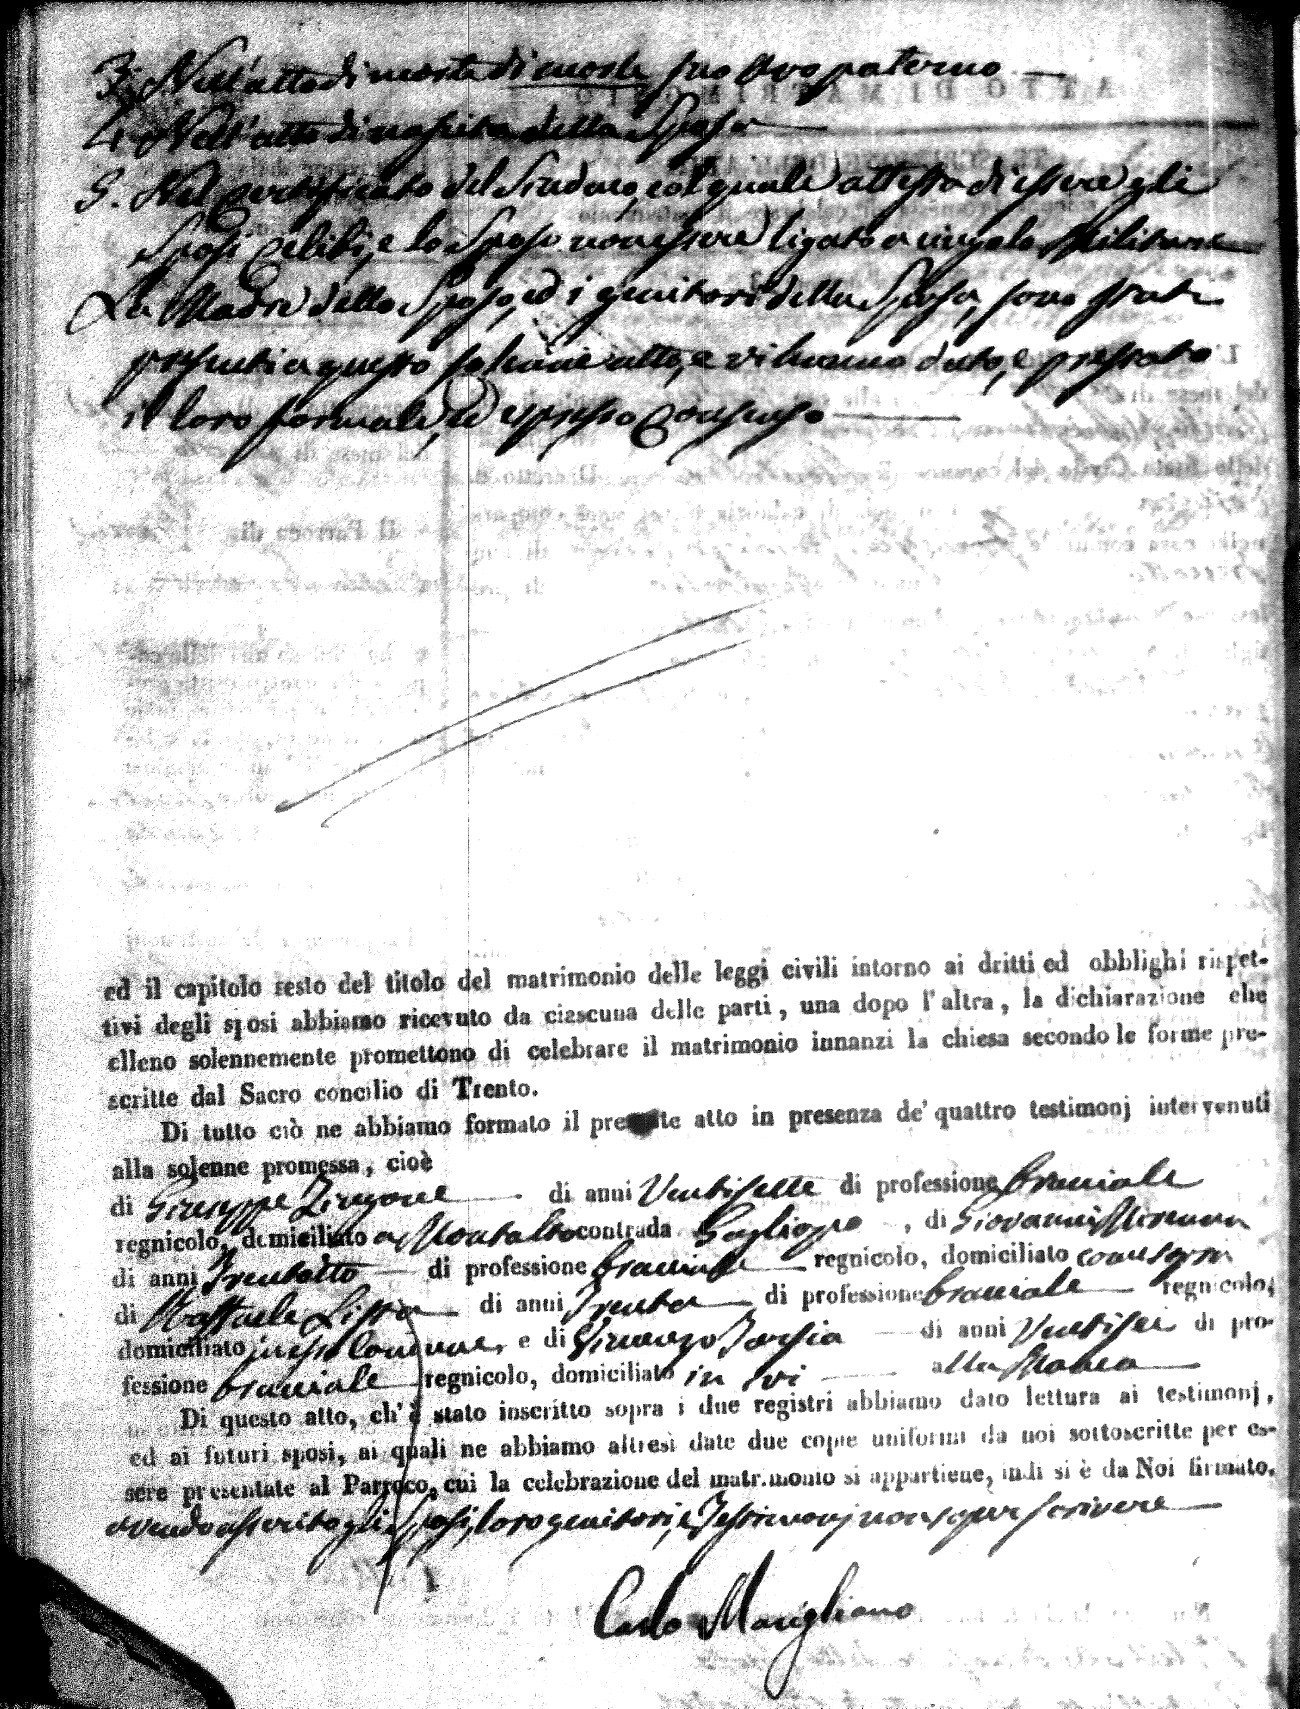 3. Nell'atto di morte di morte suo Avo paterno
4. Nell'atto di nascita della Sposa
5. Nel certificato del Sindaco, col quale attesta di essere gli
Sposi celibi, e lo Sposo non essere ligato a vincolo Militare
La Madre dello Sposo, ed i genitori della Sposa, sono stati
presenti a questo solenne atto, e vi hanno dato, e prestato
il loro formale, ed espresso Consenso
ed il capitolo sesto del titolo del matrimonio delle leggi civili intorno ai dritti ed obblighi rispet-
tivi degli sposi abbiamo ricevuto da ciascuna delle parti, una dopo l'altra, la dichiarazione che
elleno solennemente promettono di celebrare il matrimonio innanzi la chiesa secondo le forme pre-
scritte dal Sacro concilio di Trento.
Di tutto ciò ne abbiamo formato il presente atto in presenza de' quattro testimonj intervenuti
alla solenne promessa, cioè
di Giuseppe di anni Ventisette di professione braciale
regnicolo, domiciliato a Montalto contrada , di Giovanni
di anni Trentotto di professione braciale regnicolo, domiciliato come sopra
di Raffaele Lissa di anni Trenta di professione braciale regnicolo,
domiciliato in esso Comune, e di Vincenzo di anni Ventisei di pro-
fessione braciale regnicolo, domiciliato in ivi alla
Di questo atto, ch'è stato inscritto sopra i due registri abbiamo dato lettura ai testimonj,
ed ai futuri sposi, ai quali ne abbiamo altresì date due copie uniformi da noi sottoscritte per es-
sere presentate al Parroco, cui la celebrazione del matrimonio si appartiene, indi si è da Noi firmato.
avendo asserito gli Sposi, loro genitori, e Testimonj non saper scrivere
Carlo Marigliano